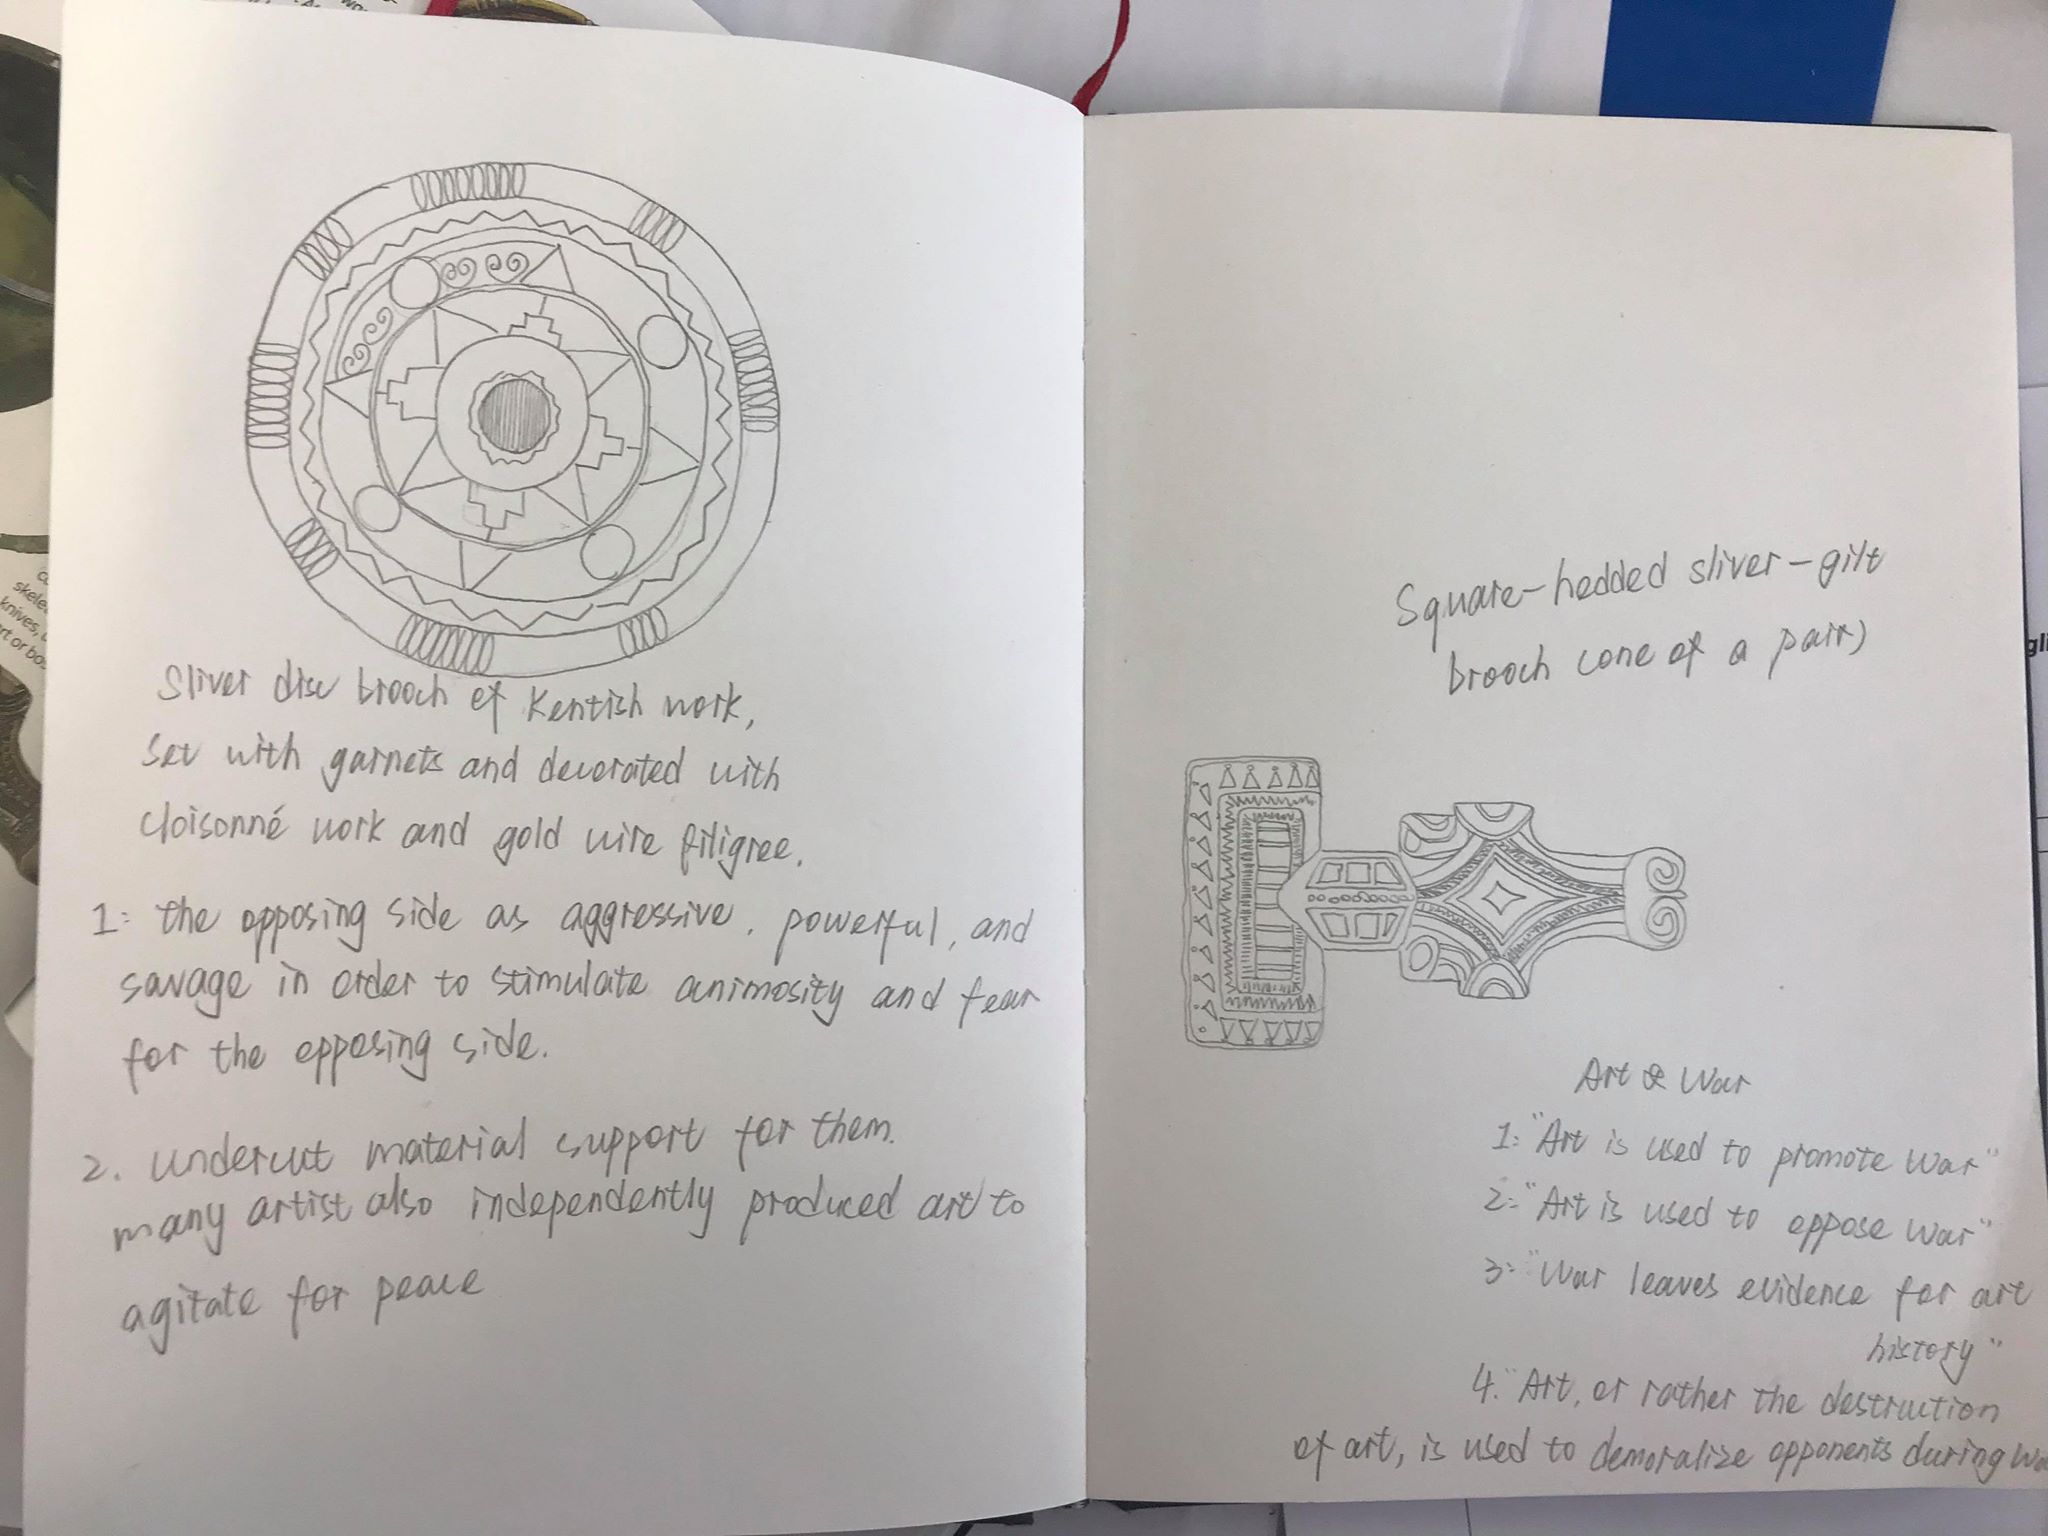 Sliver disc brooch of Kentish work,
set with garnets and decorated with
cloisonné work and gold wire filigree.
1: the opposing side as aggressive, powerful, and
savage in order to stimulate animosity and fear
for the opposing side.
2. undercut material support for them.
many artist also independently produced art to
agitate for peace
Square-hedded sliver-gilt
brooch (one of a pair)
Art & War
1: "Art is used to promote war"
2: "Art is used to oppose war"
3: "War leaves evidence for art
history"
4. "Art, or rather the destruction
of art, is used to demoralize opponents during
skele
knives,
rt or bo